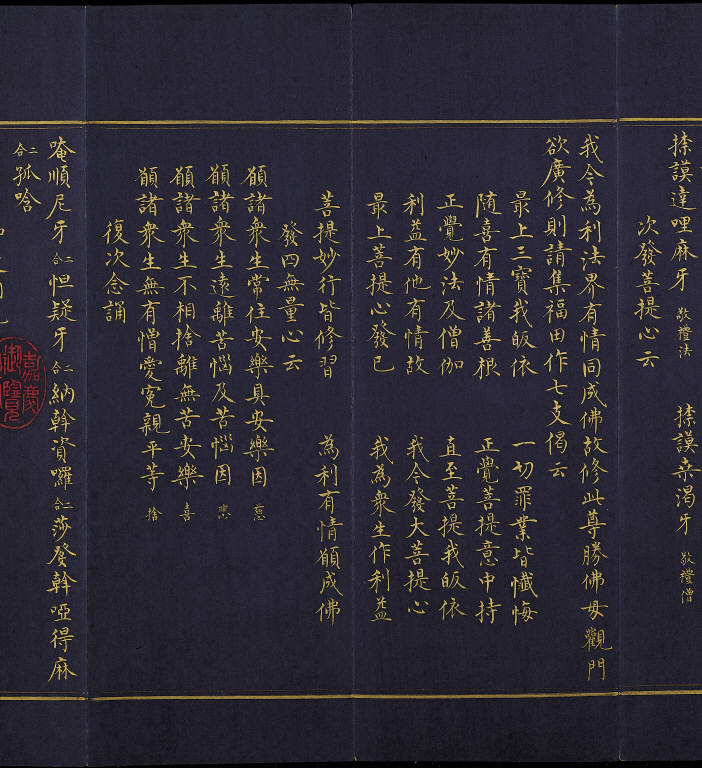 捺謨達哩麻牙 敬禮法 捺謨桒渴牙 敬禮僧
次發菩提心云
我今為利法界有情同成佛故修此尊勝佛母觀門
欲廣修則請集福田作七支偈云
最上三寶我皈依 一切罪業皆懺悔
隨喜有情諸善根 正覺菩提意中持
正覺妙法及僧伽 直至菩提我皈依
利益有他有情故 我今發大菩提心
最上菩提心發已 我為衆生作利益
菩提妙行皆修習 為利有情願成佛
發四無量心云
願諸衆生常住安樂具安樂因 慈
願諸衆生遠離苦惱及苦惱因 悲
願諸衆生不相捨離無苦安樂 喜
願諸衆生無有憎愛寃親平等 捨
復次念誦
唵順尼牙 二合 怛疑牙 二合 納斡資囉 二合 莎發斡啞得麻
二合 孤唅
嘉慶御覽